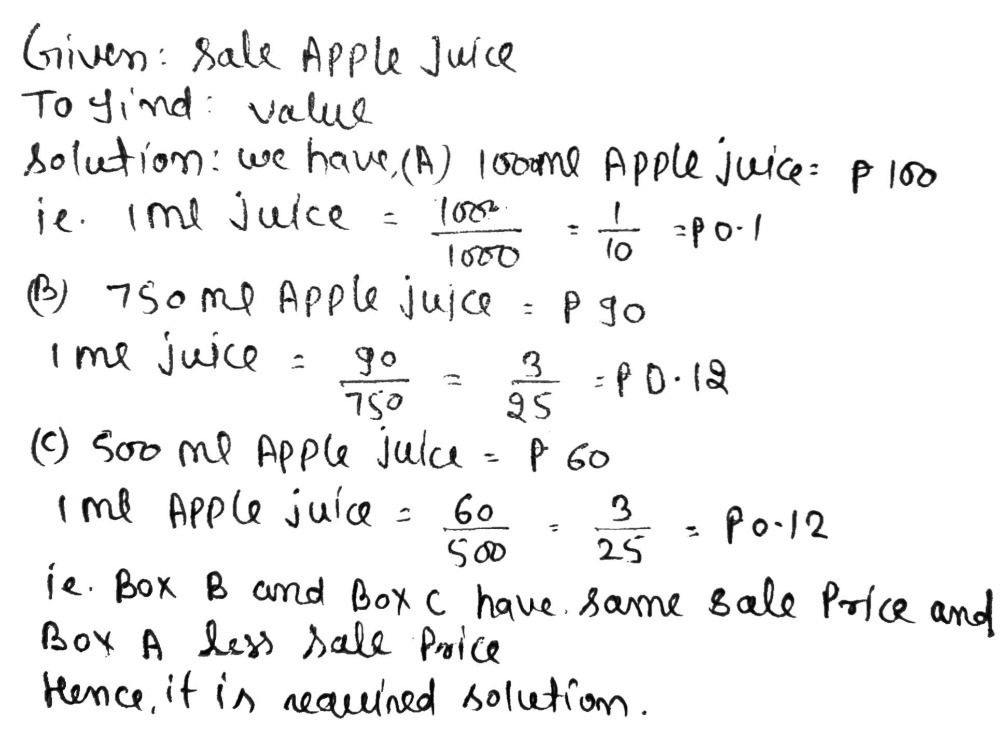 Given: Sale Apple Juice
To find: value
Solution: we have, (A) 1000ml Apple juice = ₱ 100
ie. 1ml juice = 100/1000 = 1/10 = ₱0.1
(B) 750 ml Apple juice = ₱ 90
1 ml juice = 90/750 = 3/25 = ₱0.12
(C) 500 ml Apple juice = ₱ 60
1 ml Apple juice = 60/500 = 3/25 = ₱0.12
ie. Box B and Box C have same sale Price and
Box A less sale Price
Hence, it is required solution.